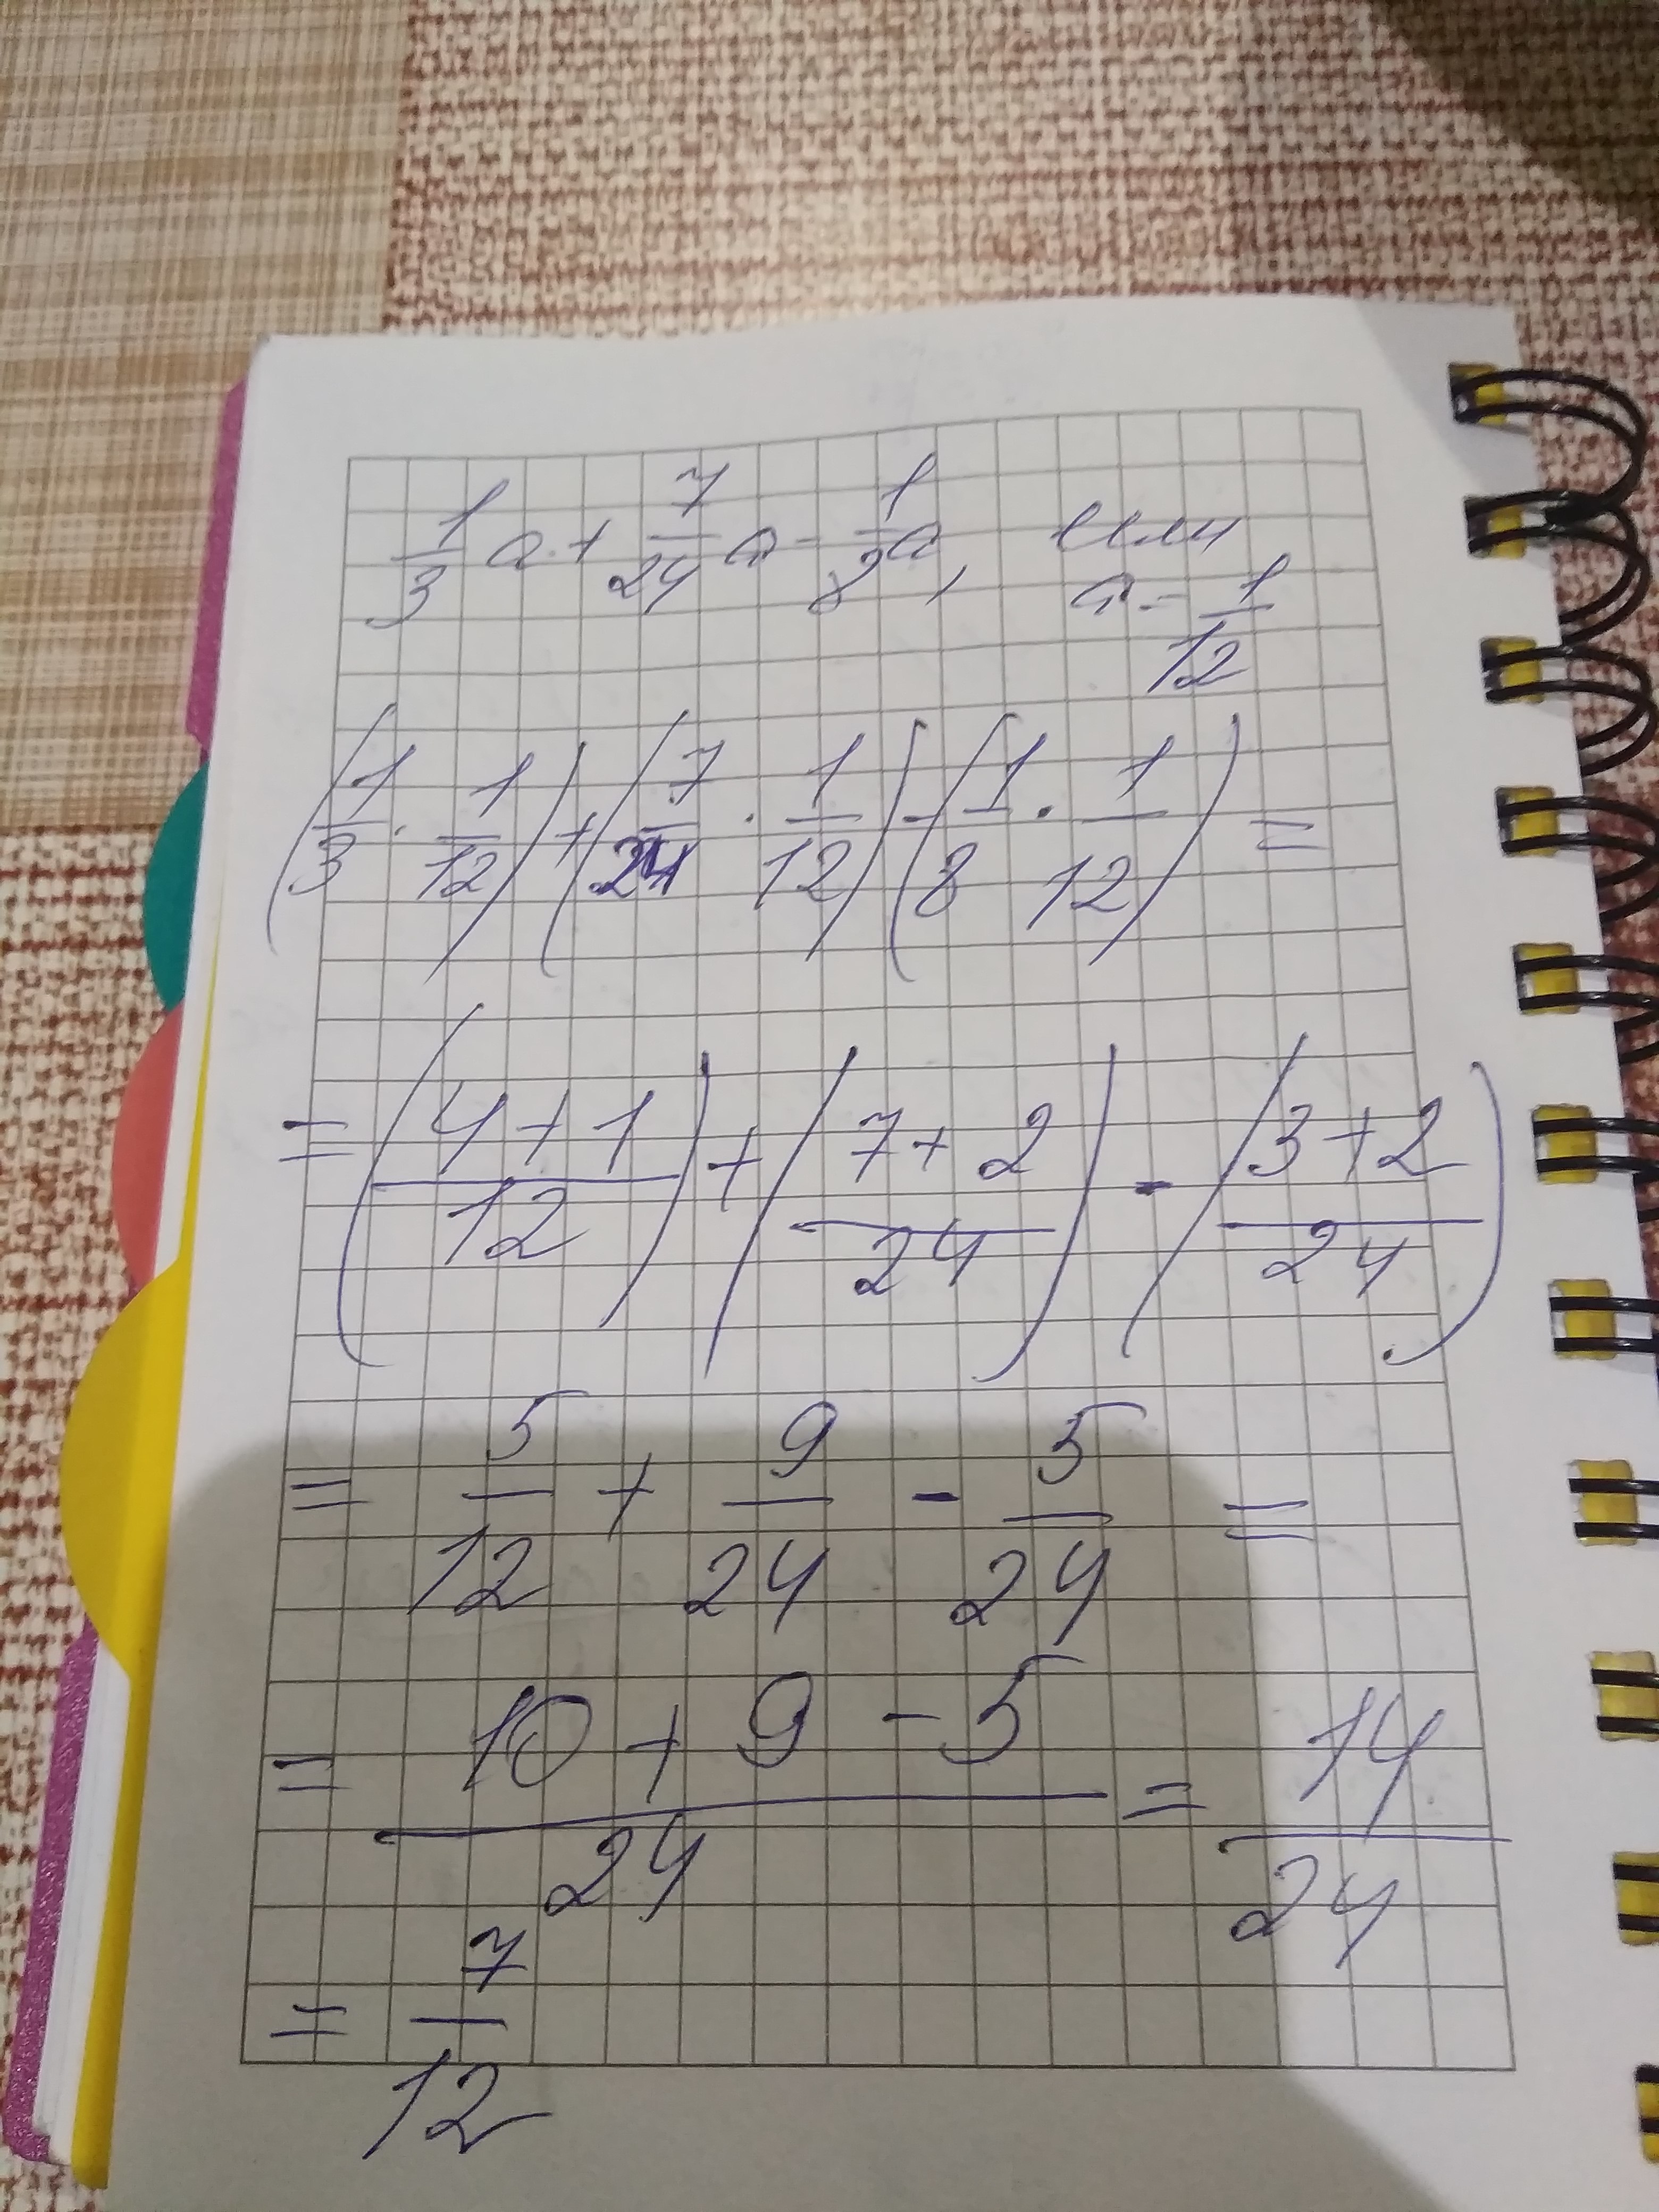 1/3 a + 7/24 a - 1/8 a, если
a = 1/12
(1/3 · 1/12) + (7/24 · 1/12) - (1/8 · 1/12) =
= (4+1/12) + (7+2/24) - (3+2/24)
= 5/12 + 9/24 - 5/24 =
= 10+9-5/24 = 14/24
= 7/12